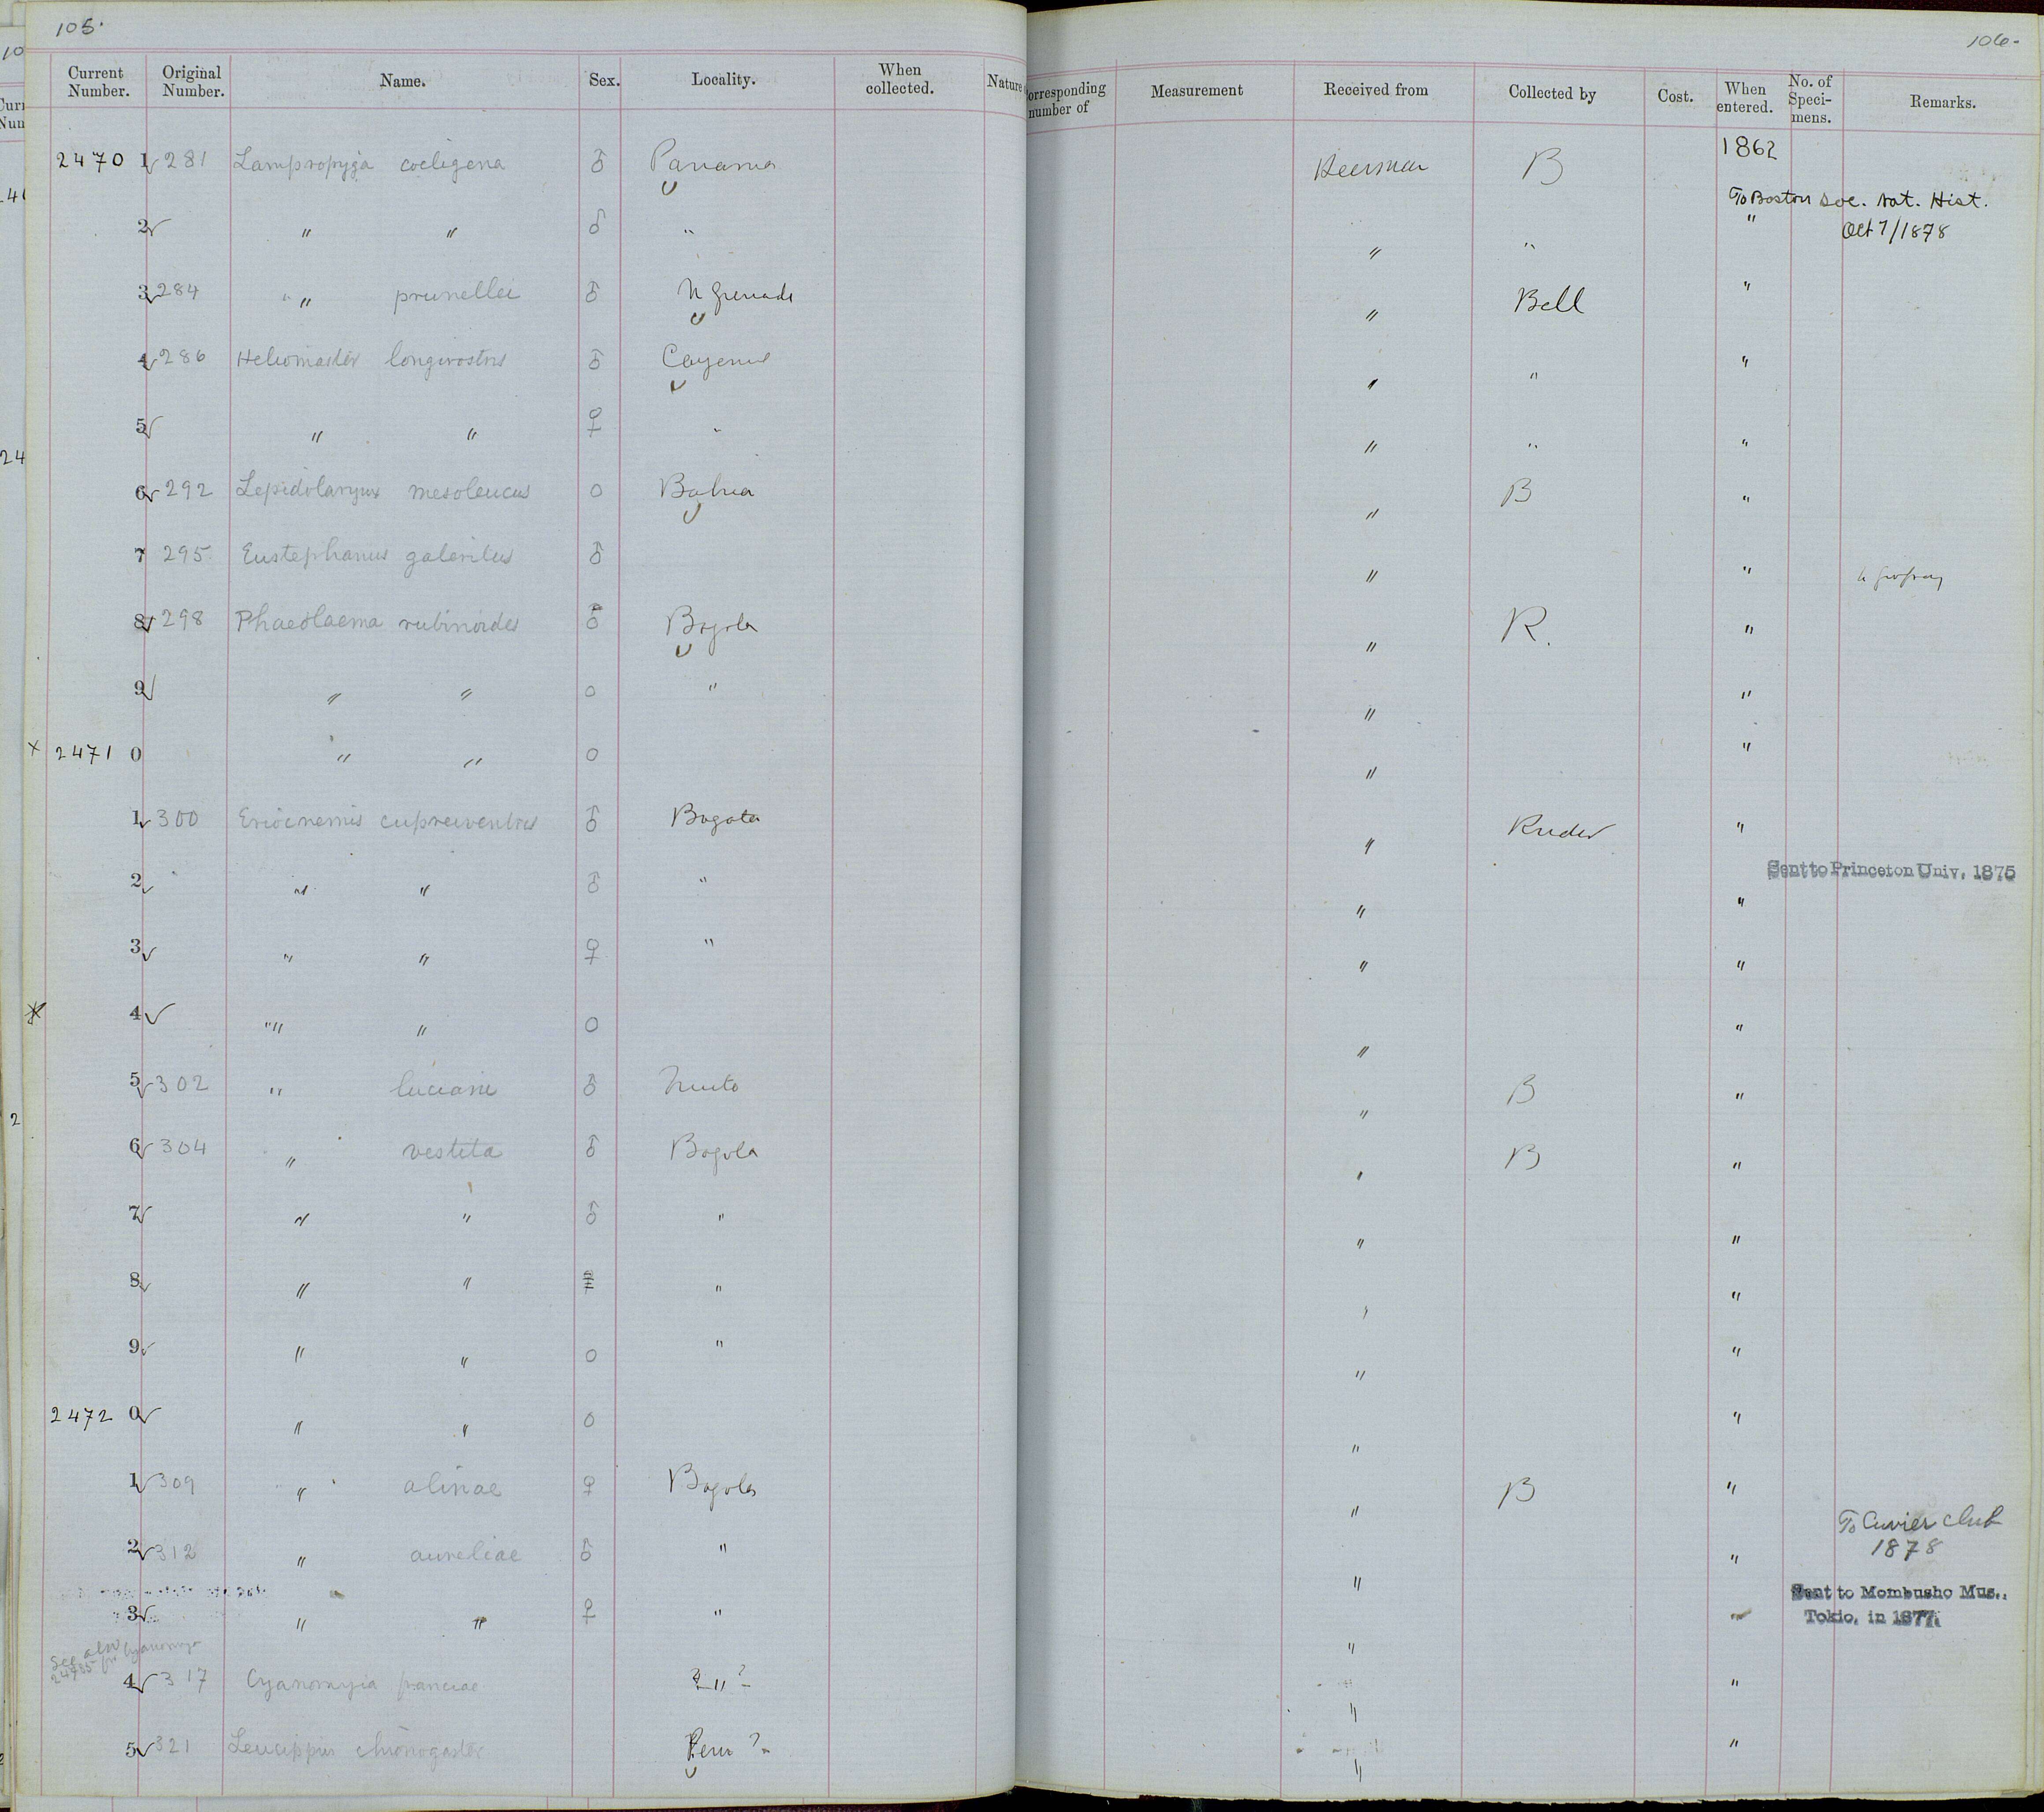 105.
106.
Current Number. Original Number. Name. Sex. Locality. When collected. Nature
orresponding number of Measurement Received from Collected by Cost. When entered. No. of Speci- mens. Remarks.
2470 1 281 Lampropygia coeligena ♂ Panama Heerman B 1862
To Boston Soc. Nat. Hist.
2 " " ♂ " " " " Oct 7/1878
3 284 " " prunellei ♂ N Grenada " Bell "
4 286 Heliomaster longirostris ♂ Cayenne " " "
5 " " ♀ " " " "
6 292 Lepidolarynx mesoleucus O Bahia " B "
7 295 Eustephanus galeritus ♂ " "
8 298 Phaeolaema rubinoides ♂ Bogota " R. "
9 " " O " " "
x 2471 0 " " O " "
1 300 Eriocnemis cupreiventris ♂ Bogota " "
Sent to Princeton Univ. 1875
2 " " ♂ " " "
3 " " ♀ " " "
4 " " O " "
5 302 " luciani ♂ " B "
6 304 " vestita ♂ Bogota " B "
7 " " ♂ " " "
8 " " " " "
9 " " O " " "
2472 0 " " O " "
1 309 " alinae ♀ Bogota " B "
To Cuvier Club
1878
2 312 " aureliae ♂ " " "
Sent to Mombusho Mus.,
Tokio, in 1877.
3 " " ♀ " "
See also Cyanomyia
24785
4 317 Cyanomyia franciae " ? " "
5 321 Leucippus chionogaster Peru ? " "